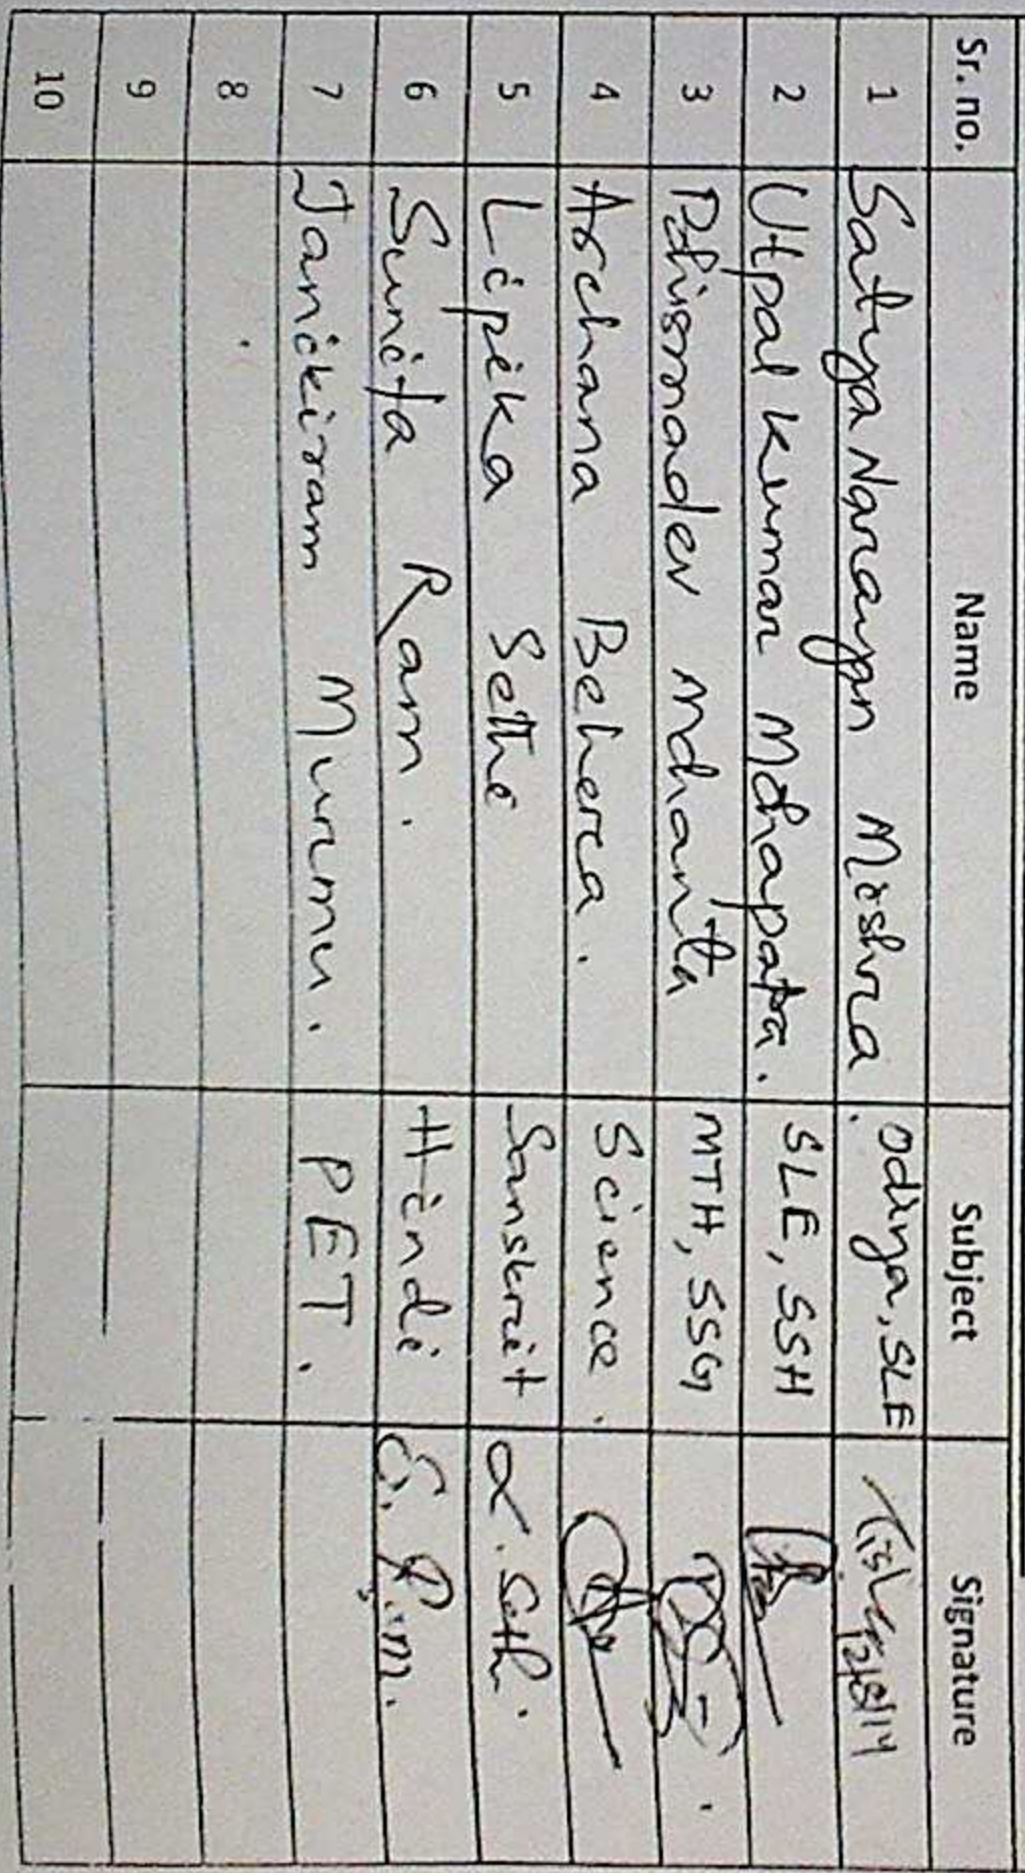 Sr. no. Name Subject Signature
1 Satya Narayan Mishra . Odiya, SLE
2 Utpal Kumar Mohapatra. SLE, SSH
3 Bhismadev Mohanta MTH, SSG
4 Archana Behera. Science.
5 Lipika Sethi Sanskrit L. Seth.
6 Sunita Ram. Hindi S. Ram.
7 Janikiram Murmu. PET.
8
9
10